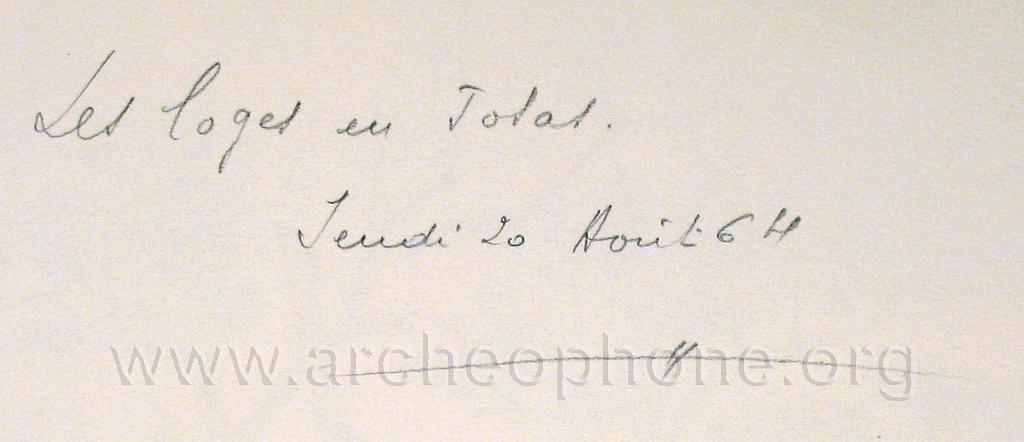 Les loges en Josas.
Jeudi 20 Août 64
www.archeophone.org